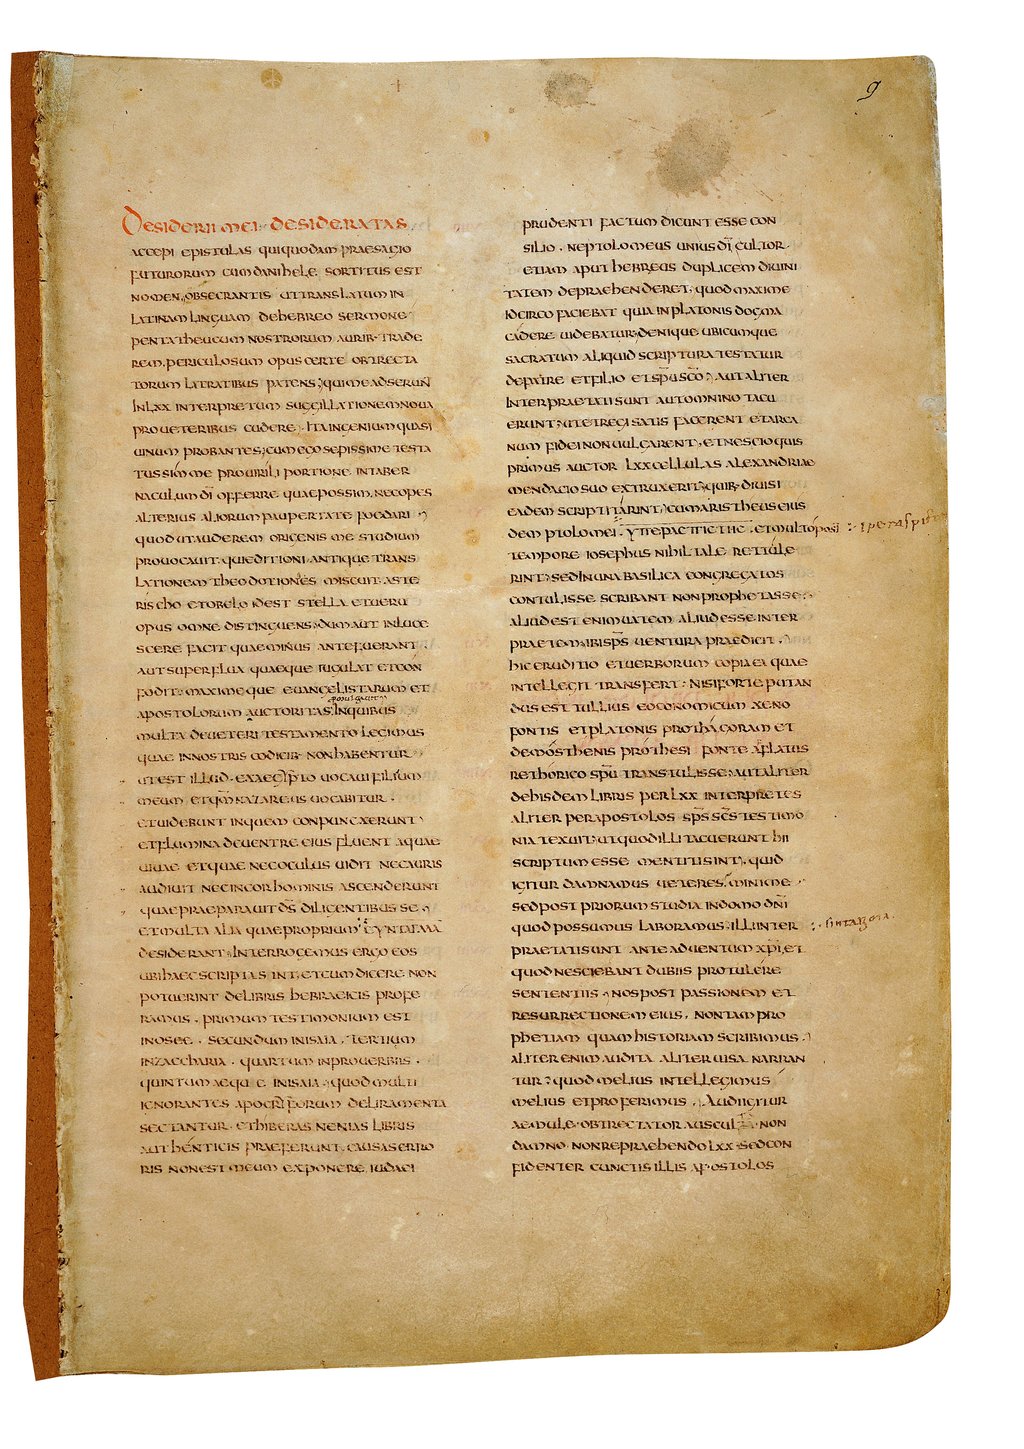 9
DESIDERII MEI DESIDERATAS
ACCEPI EPISTULAS QUIQUODAM PRAESAGIO
FUTURORUM CUM DANIHELE SORTITUS EST
NOMEN, OBSECRANTIS UT TRANSLATUM IN
LATINAM LINGUAM DE HEBREO SERMONE
PENTATHEUCUM NOSTRORUM AURIB· TRADE
REM. PERICULOSUM OPUS CERTE OBTRECTA
TORUM LATRATIBUS PATENS; QUI ME ADSERUNT
IN LXX INTERPRETUM SUGGILLATIONEM NOUA
PRO UETERIBUS CUDERE· ITA INGENIUM QUASI
UINUM PROBANTES; CUM EGO SEPISSIME TESTA
TUS SIM ME PRO UIRILI PORTIONE IN TABER
NACULUM DĪ OFFERRE QUAE POSSIM, NEC OPES
ALTERIUS ALIORUM PAUPERTATE FOEDARI
QUOD UT AUDEREM ORIGENIS ME STUDIUM
PROUOCAUIT· QUI EDITIONI ANTIQUE TRANS
LATIONEM THEODOTIONES MISCUIT· ASTE
RISCHO ET OBELO IDEST STELLA ET UERU
OPUS OMNE DISTINGUENS; DUM AUT INLUCE
SCERE FACIT QUAE MINUS ANTE FUERANT·
AUT SUPERFLUA QUAEQUE IUGULAT ET CON
FODIT· MAXIMEQUE EUANGELISTARUM ET
APOSTOLORUM AUCTORITAS; IN QUIBUS
MULTA DE UETERI TESTAMENTO LEGIMUS
QUAE IN NOSTRIS CODICIB· NON HABENTUR
UT EST ILLUD· EX AEGYPTO UOCAUI FILIUM
MEUM ET QM̄ NAZAREUS UOCABITUR·
ET UIDEBUNT IN QUEM CONPUNXERUNT
ET FLUMINA DE UENTRE EIUS FLUENT AQUAE
UIUAE ET QUAE NEC OCULUS UIDIT NEC AURIS
AUDIUIT NEC IN COR HOMINIS ASCENDERUNT
QUAE PRAEPARAUIT DS̄ DILIGENTIBUS SE
ET MULTA ALIA QUAE PROPRIUM CYNTAΓMA
DESIDERANT· INTERROGEMUS ERGO EOS
UBI HAEC SCRIPTA SINT, ET CUM DICERE NON
POTUERINT DE LIBRIS HEBRAICIS PROFE
RAMUS· PRIMUM TESTIMONIUM EST
IN OSEE· SECUNDUM IN ISAIA· TERTIUM
IN ZACCHARIA· QUARTUM IN PROUERBIIS·
QUINTUM AEQUE IN ISAIA; QUOD MULTI
IGNORANTES APOCRIFORUM DELIRAMENTA
SECTANTUR· ET HIBERAS NENIAS LIBRIS
AUTHENTICIS PRAEFERUNT· CAUSAS ERRO
RIS NON EST MEUM EXPONERE, IUDAEI
PRUDENTI FACTUM DICUNT ESSE CON
SILIO· NE PTOLOMEUS UNIUS DĪ CULTOR·
ETIAM APUT HEBREOS DUPLICEM DIUINI
TATEM DEPRAEHENDERET· QUOD MAXIME
IDCIRCO FACIEBAT QUIA IN PLATONIS DOGMA
CADERE UIDEBATUR; DENIQUE UBICUMQUE
SACRATUM ALIQUID SCRIPTURA TESTATUR
DE PATRE ET FILIO ET SPŪ SCŌ; AUT ALITER
INTERPRAETATI SUNT AUT OMNINO TACU
ERUNT; UT ET REGI SATIS FACERENT ET ARCA
NUM FIDEI NON UULGARENT, ET NESCIO QUIS
PRIMUS AUCTOR LXX CELLULAS ALEXANDRIAE
MENDACIO SUO EXTRUXERIT; QUIB· DIUISI
EADEM SCRIPTITARINT; CUM ARISTHEUS EIUS
DEM PTOLOMEI ΥΠΕΡΑCΠΙCΤΗC· ET MULTO POST :· iperaspistis
TEMPORE IOSEPHUS NIHIL TALE RETULE
RINT; SED IN UNA BASILICA CONGREGATOS
CONTULISSE SCRIBANT NON PROPHETASSE;
ALIUD EST ENIM UATEM ALIUD ESSE INTER
PRAETEM. IBI SPS̄ UENTURA PRAEDICIT·
HIC ERUDITIO ET UERBORUM COPIA EA QUAE
INTELLEGIT TRANSFERT; NISI FORTE PUTAN
DUS EST TULLIUS EOCONOMICUM XENO
FONTIS ET PLATONIS PROTHAGORAM ET
DEMOSTHENIS PROTHESI FONTE AFLATUS
RETHORICO SPŪ TRANSTULISSE; AUT ALITER
DE HISDEM LIBRIS PER LXX INTERPRETES
ALITER PER APOSTOLOS SPS̄ SCS̄ TESTIMO
NIA TEXUIT; UT QUOD ILLI TACUERUNT HII
SCRIPTUM ESSE MENTITI SINT, QUID
IGITUR DAMNAMUS UETERES, MINIME·
SED POST PRIORUM STUDIA IN DOMO DNĪ
QUOD POSSUMUS LABORAMUS· ILLI INTER :· sintagma·
PRAETATI SUNT ANTE ADUENTUM XPĪ, ET
QUOD NESCIEBANT DUBIIS PROTULERE
SENTENTIIS· NOS POST PASSIONEM ET
RESURRECTIONEM EIUS, NON TAM PRO
PHETIAM QUAM HISTORIAM SCRIBIMUS·
ALITER ENIM AUDITA ALITER UISA NARRAN
TUR; QUOD MELIUS INTELLEGIMUS
MELIUS ET PROFERIMUS· AUDI IGITUR
AEMULE· OBTRECTATOR AUSCULTA· NON
DAMNO· NON REPRAEHENDO LXX· SED CON
FIDENTER CUNCTIS ILLIS APOSTOLOS